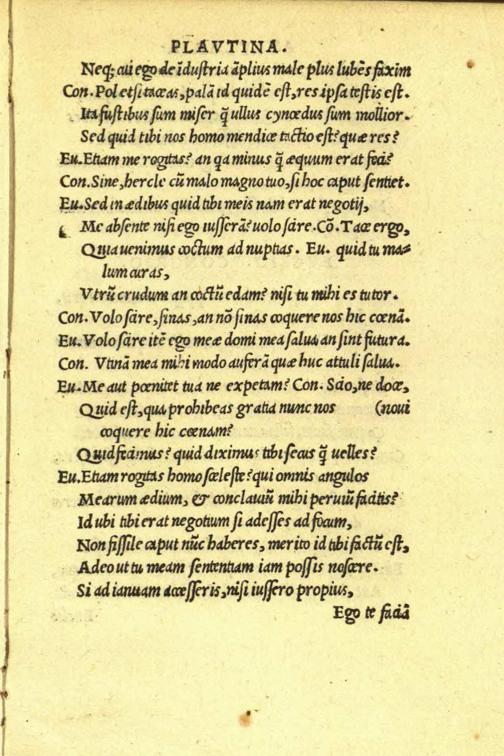 PLAVTINA.
Neq; cui ego de īdustria āplius male plus lubēs faxim
Con. Pol etsi taceas, palā id quidē est, res ipsa testis est.
Ita fustibus sum miser q̄ ullus cynœdus sum mollior.
Sed quid tibi nos homo mendice tactio est? quæ res?
Eu. Etiam me rogitas? an qa minus q̄ æquum erat feci?
Con. Sine, hercle cū malo magno tuo, si hoc caput sentiet.
Eu. Sed in ædibus quid tibi meis nam erat negotij,
Me absente nisi ego iusserā? uolo scire. Cō. Tace ergo,
Quia uenimus coctum ad nuptias. Eu. quid tu ma-
lum curas,
Vtrū crudum an coctū edam? nisi tu mihi es tutor.
Con. Volo scire, sinas, an nō sinas coquere nos hic cœnā.
Eu. Volo scire itē ego meæ domi mea salua an sint futura.
Con. Vtinā mea mihi modo auferā quæ huc attuli salua.
Eu. Me aut pœnitet tua ne expetam? Con. Scio, ne doce,
Quid est, qua prohibeas gratia nunc nos (noui
coquere hic cœnam?
Quid fecimus? quid diximus tibi secus q̄ uelles?
Eu. Etiam rogitas homo sceleste? qui omnis angulos
Mearum ædium, & conclauiū mihi peruiū facitis?
Id ubi tibi erat negotium si adesses ad focum,
Non fissile caput nūc haberes, merito id tibi factū est,
Adeo ut tu meam sententiam iam possis noscere.
Si ad ianuam accesseris, nisi iussero propius,
Ego te faciā